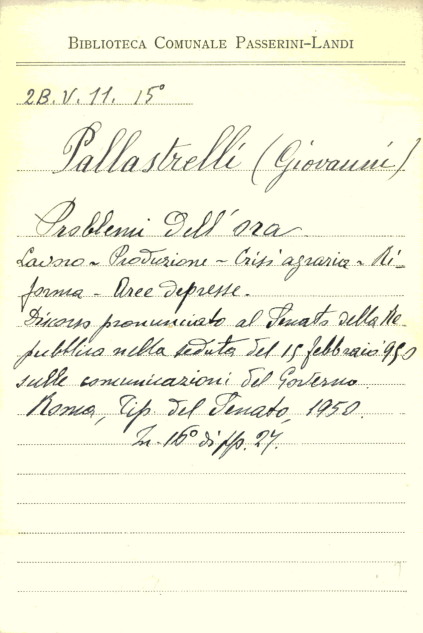 BIBLIOTECA COMUNALE PASSERINI-LANDI
2B.V.11. 15°
Pallastrelli (Giovanni)
Problemi dell'ora
Lavoro - Produzione - Crisi agraria - Ri-
forma - Aree depresse.
Discorso pronunciato al Senato della Re-
pubblica nella seduta del 15 febbraio 950
sulle comunicazioni del Governo.
Roma, Tip. del Senato, 1950.
In-16° di pp. 27.